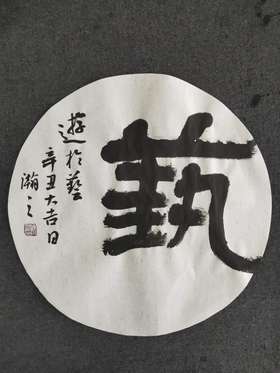 藝
遊於藝
辛丑大吉日
瀚之